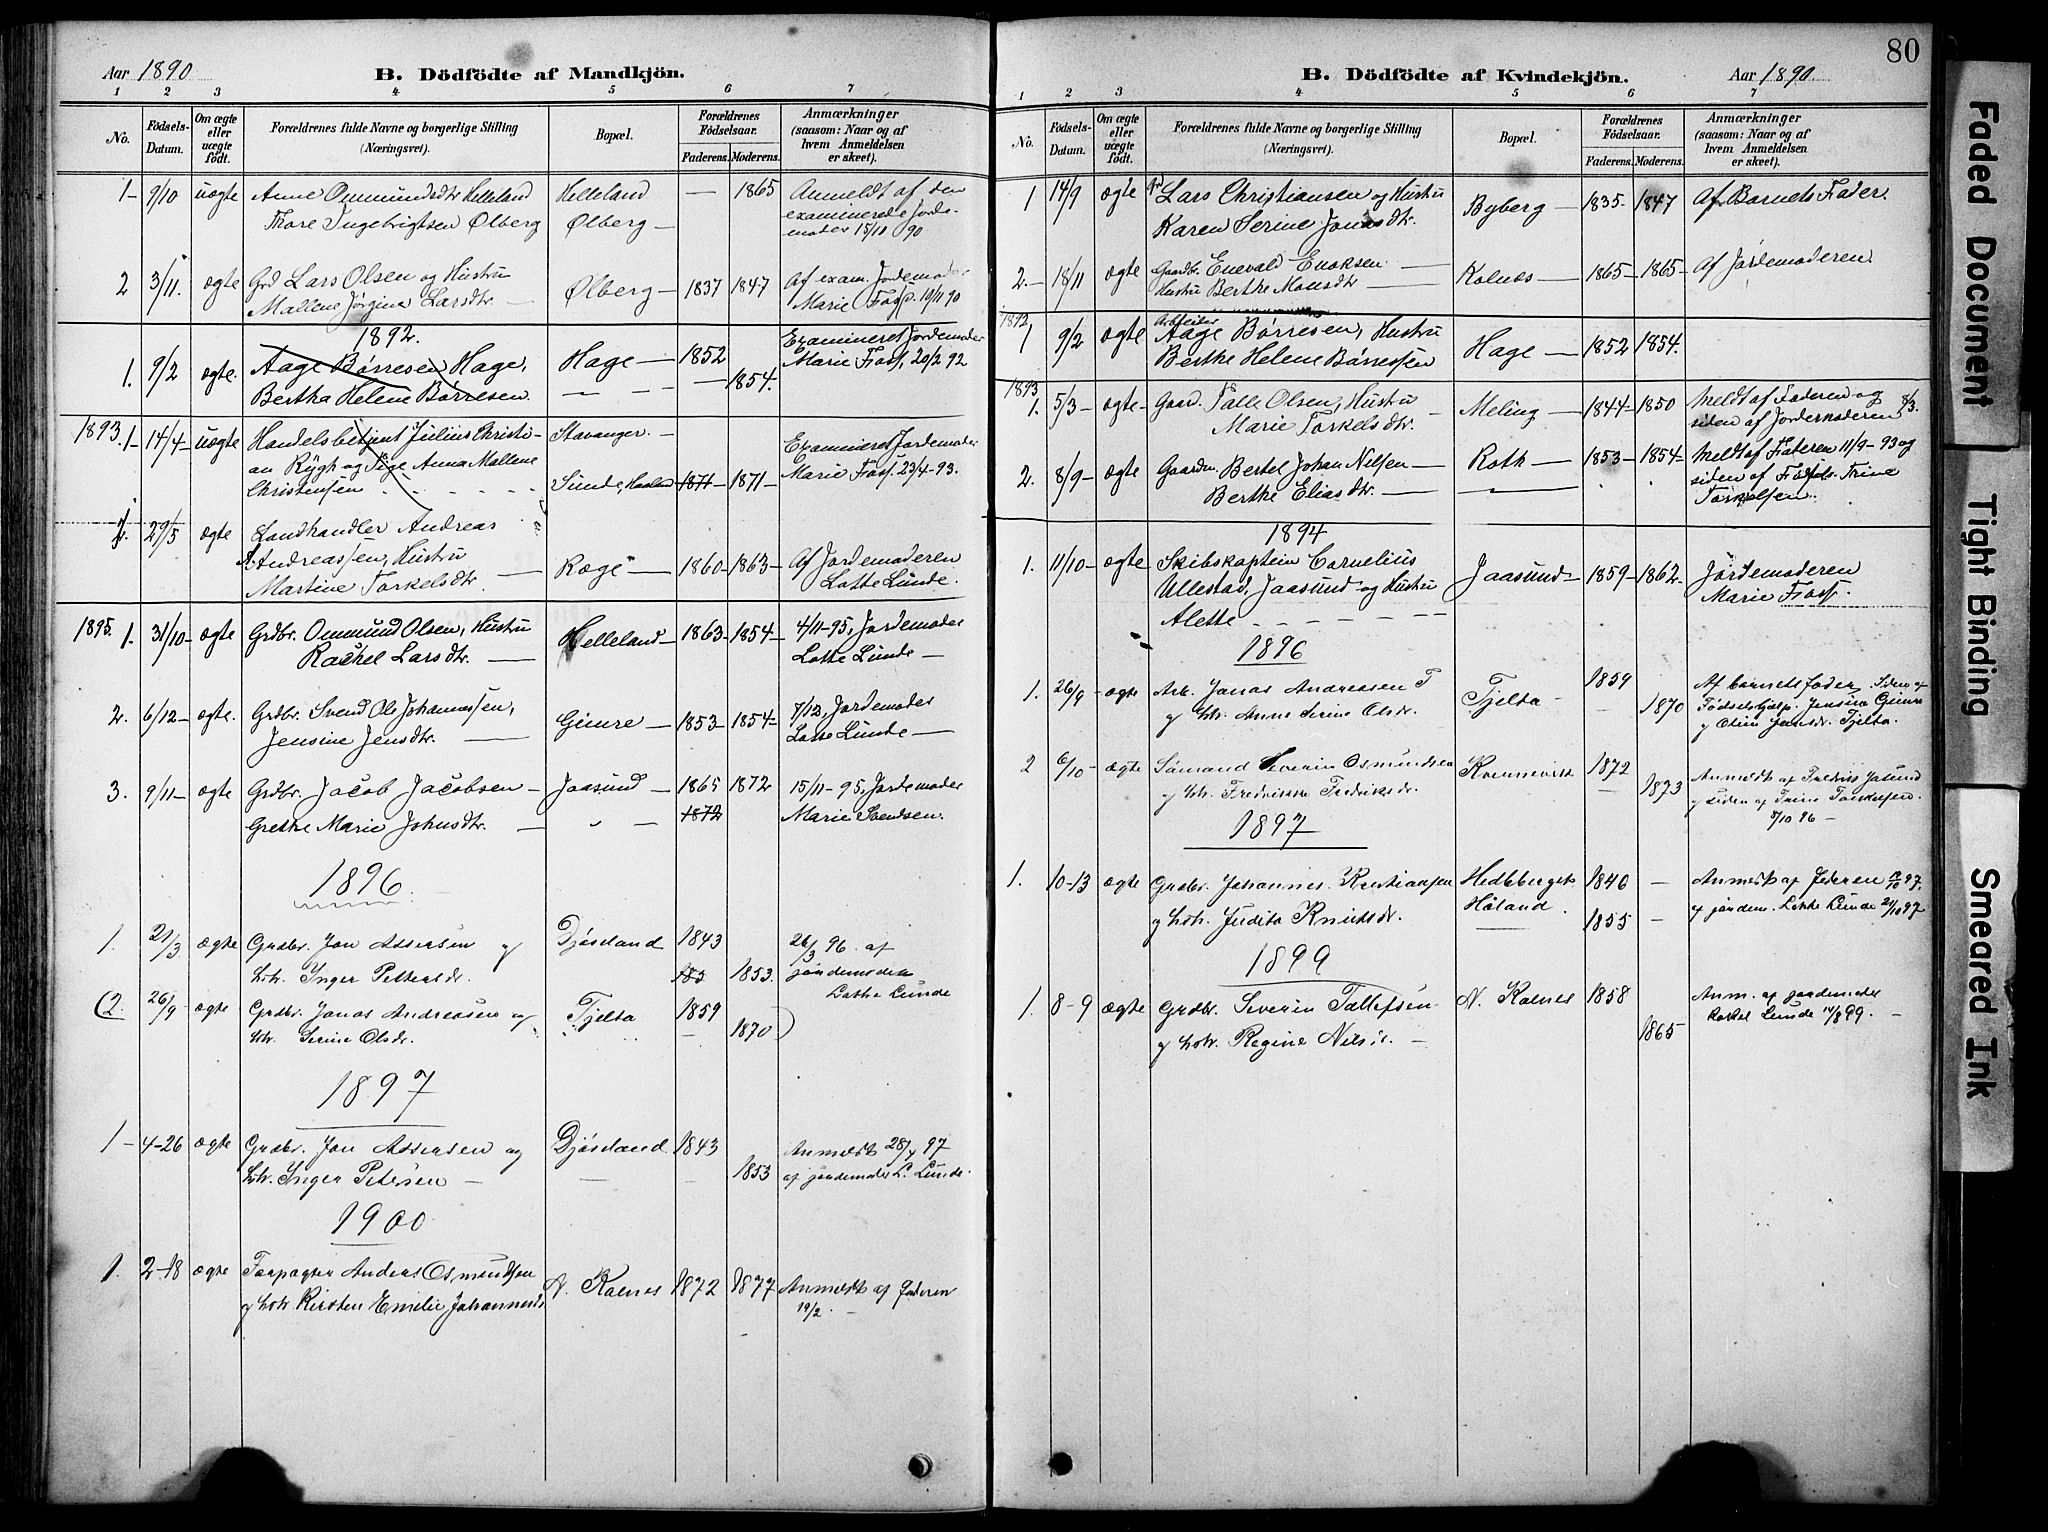 Aar 1890
B. Dödfödte af Mandkjön.
1 2 3 4 5 6 7
No. Födsels-Datum. Om ægte eller uægte födt. Forældrenes fulde Navne og borgerlige Stilling (Næringsvei). Bopæl. Forældrenes Födselsaar. Faderens. Moderens. Anmærkninger (saasom: Naar og af hvem Anmeldelsen er skeet).
1- 9/10 uægte Anne Ommundsdtr Helleland Helleland — 1865 Anmeldt af den
Thore Ingebrigtsen Ølberg Ølberg — examinerede Jorde-
moder 15/11 90
2 3/11. ægte Grd Lars Olsen og Hustru Ølberg — 1837 1847 Af exam. Jordemoder
Mallene Jørgine Larsdtr. — Marie Foss. 10/11 90
1892.
1. 9/2 ægte. Aage Børresen Hage, Hage — 1852 Examineret Jordemoder
Bertha Helene Børresen. — — — 1854. Marie Foss, 20/2 92
1893. 1- 14/4- uægte Handelsbetjent Julius Christi- Stavanger. — Examineret Jordemoder
an Rygh og Pige Anna Mallene Marie Foss. 23/4-93.
Christensen Sunde, Haaland 1871- 1871-
29/5 ægte Landhandler Andreas
A. Andreassen, Hustru Røge — 1860- 1863- Af Jordemoderen
Martine Torkelsdtr. — Lotte Lunde.
1895. 1. 31/10- ægte Grdbr. Ommund Olsen, Hustru Helleland — 1863- 1854- 4/11-95, Jordemoder
Rachel Larsdtr. — Lotte Lunde —
2. 6/12- ægte. Grdbr. Svend Ols Johannessen, Gimre — 1853- 1854- 7/12, Jordemoder
Jensine Jensdtr. — Lotte Lunde —
3. 9/11- ægte Grdbr. Jacob Jacobsen — Jaasund — 1865 1872 15/11-95, Jordemoder
Grethe Marie Johnsdtr. — " — 1872 Marie Svendsen.
1896.
1. 21/3 ægte Grdbr. Jon Assersen og Djøseland 1843 26/3 96. af
hstr. Inger Pettersdr. 185 1853. jordemoder
Lothe Lunde
(2. 26/9 ægte Grdbr. Jonas Andreasen og Tjelta 1859
hstr. Serine Olsdr. — 1870)
1897
1- 4-26 ægte Grdbr. Jon Assersen og Djøseland 1843 Anmeldt 28/4 97
hstr. Inger Petersen — — — 1853 af jordemoder L. Lunde.
1900
1. 2-18 ægte Forpagter Anders Osmundsen N. Kolnes 1872 1877 Anmeldt af faderen
og hstr Kirsten Emilie Johannesd. 19/2 —
80
B. Dödfödte af Kvindekjön.
Aar 1890
1 2 3 4 5 6 7
No. Födsels-Datum. Om ægte eller uægte födt. Forældrenes fulde Navne og borgerlige Stilling (Næringsvei). Bopæl. Forældrenes Födselsaar. Faderens. Moderens. Anmærkninger (saasom: Naar og af hvem Anmeldelsen er skeet).
1 14/9 ægte Grd Lars Christiansen og Hustru Byberg — 1835- 1847 Af Barnets Fader.
Karen Serine Jonasdtr.
2.- 18/11 ægte Gaardb. Enevald Enoksen — Kolnes — 1865- 1865- Af Jordemoderen.
Hustru Berthe Monsdtr —
1892 1 9/2 ægte Arbeider Aage Børresen, Hustru Hage — 1852 1854.
Berthe Helene Børressen
1893 1. 5/3 - ægte- Gaard. Talle Olsen, Hustru Meling — 1844- 1850 Meldt af Faderen og
Marie Torkelsdtr. siden af Jordemoderen 8/3.
2. 8/9 - ægte Gaardm. Bertel Johan Nilsen — Roth — 1853- 1854- Meldt af Faderen 11/9-93 og
Berthe Eliasdtr. — siden af Fødsels. Trine
Torkelsen.
1894
1. 11/10- ægte Skibskaptein Cornelius Jaasund — 1859- 1862- Jordemoderen
Ullestad, Jaasund og Hustru Marie Foss.
Alette — — — — —
1896
1. 26/9 - ægte Arb. Jonas Andreasen T Tjelta - 1859 Af barnets fader. Siden af
og hstr. Anne Serine Olsdr. — 1870 Fødselshjælp. Jensine Gimre
og Oline Jansdr. Tjelta.
2 6/10- ægte Sømand Severin Osmundsen Kvernevik 1872 Anmeldt af Fredrik Jasund
og hstr. Fredrikke Fredriksdr. — 1873 og siden af Trine Torkelsen.
8/10 96 —
1897
1. 10-13 ægte Grdbr. Johannes Kristiansen Hedleberget 1840 — Anmeldt af faderen 19/10 97,
og hstr. Judita Knutsdr. Håland. 1855 — af jordem. Lothe Lunde 21/10 97
1899
1. 8-9 ægte Grdbr. Severin Tollefsen N. Kolnes 1858 Anm. af jordemoder
og hstr. Regine Nilsdr. — 1865 Rakel Lunde 14/8 99. —
Faded Document
Tight Binding
Smeared Ink